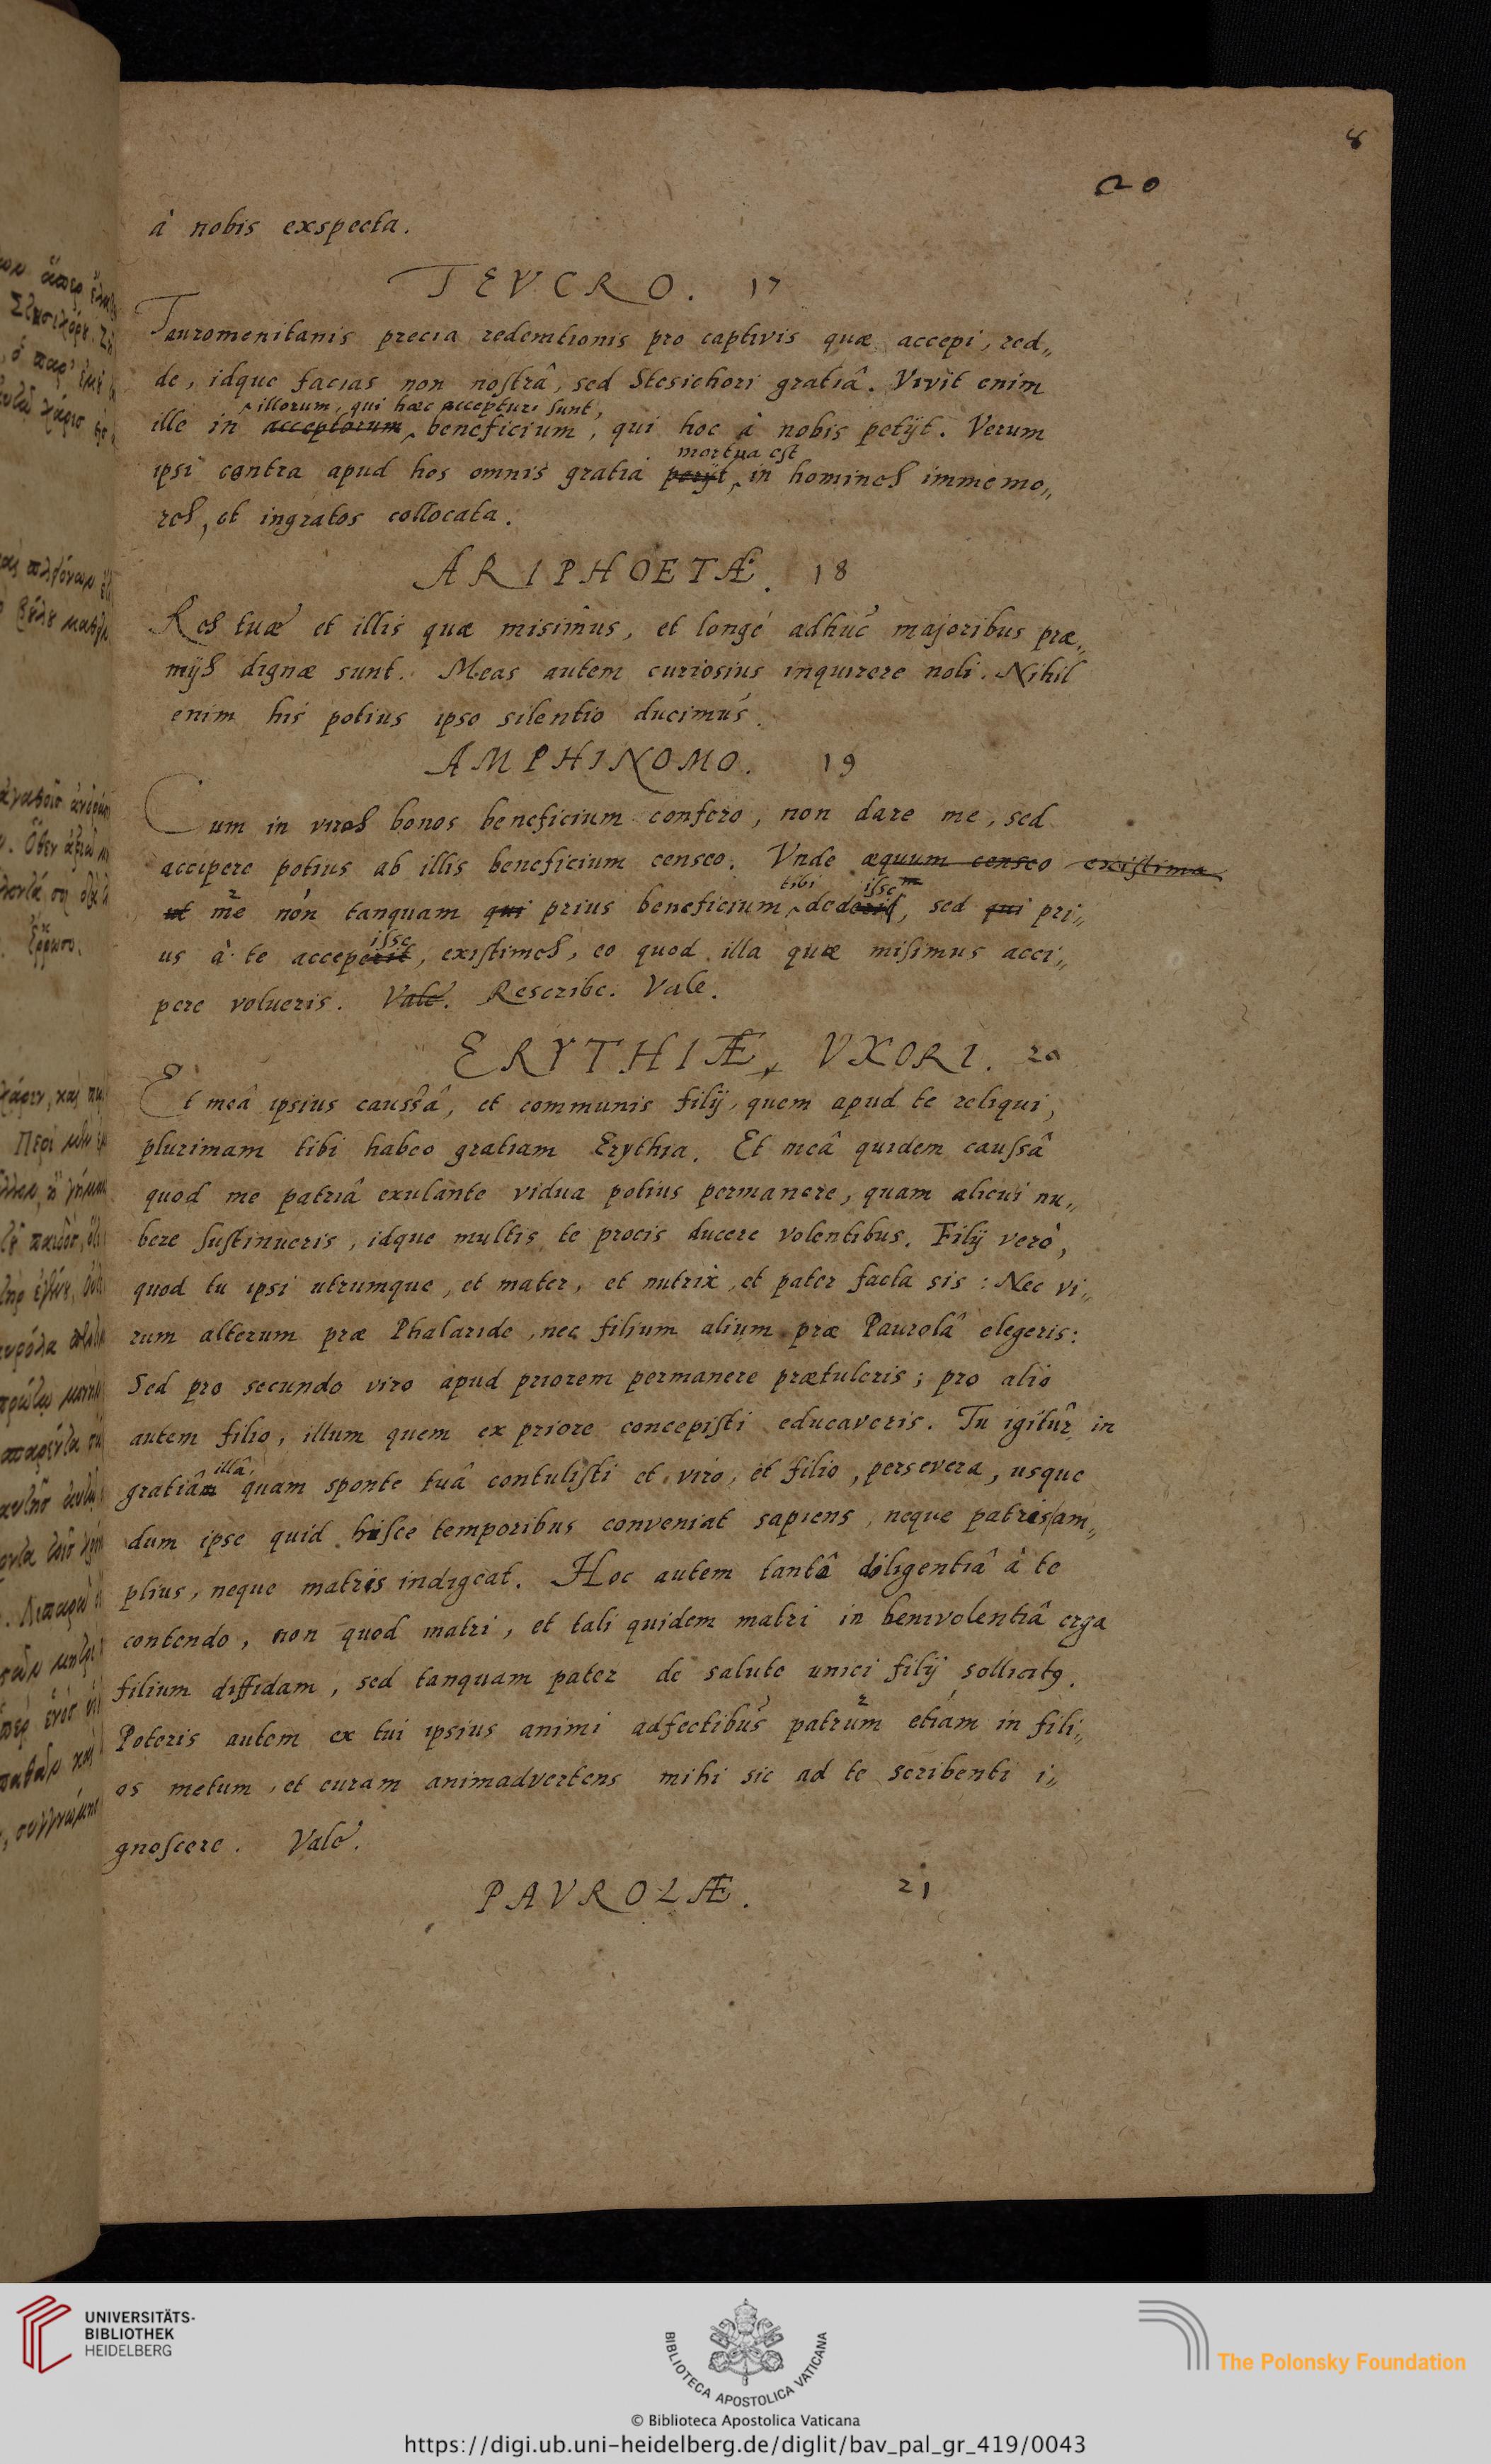 8
20
à nobis exspecta.
TEVCRO. 17
Tauromenitanis precia redemtionis pro captivis quæ accepi, red„
de, idque facias non noſtrâ, sed Stesichori gratiâ. Vivit enim
illorum, qui hæc accepturi sunt,
ille in acceptorum beneficium, qui hoc à nobis petijt. Verum
mortua est
ipsi contra apud hos omnis gratia perijt, in homines immemo„
res, et ingratos collocata.
ARIPHOETÆ. 18
Res tuæ et illis quæ misimus, et longé adhuc majoribus præ„
mijs dignæ sunt. Meas autem curiosius inquirere noli. Nihil
enim his potius ipso silentio ducimus.
AMPHINOMO. 19
Cum in viros bonos beneficium confero, non dare me, sed
accipere potius ab illis beneficium censeo. Vnde æquum censeo existima
tibi iſse
ut me non tanquam qui prius beneficium dederis, sed qui pri„
iſse
us à te acceperit, exiſtimes, eo quod illa quæ miſimus acci„
pere volueris. Vale. Rescribe. Vale.
ERYTHIÆ, VXORI. 20
Et meâ ipsius caussâ, et communis filij, quem apud te reliqui,
plurimam tibi habeo gratiam Erythia. Et meâ quidem cauſsâ
quod me patriâ exulante vidua potius permanere, quam alicui nu„
bere ſuſtinueris, idque multis te procis ducere volentibus. Filij verò,
quod tu ipsi utrumque, et mater, et nutrix, et pater facta sis: Nec vi„
rum alterum præ Phalaride, nec filium alium præ Paurolâ elegeris:
Sed pro secundo viro apud priorem permanere prætuleris; pro alio
autem filio, illum quem ex priore concepiſti educaveris. Tu igitur in
illâ
gratiâm quam sponte tuâ contuliſti et viro, et filio, persevera, usque
dum ipse quid hisce temporibus conveniat sapiens, neque patris am„
plius, neque matris indigeat. Hoc autem tantâ diligentiâ à te
contendo, non quod matri, et tali quidem matri in benivolentiâ erga
filium diffidam, sed tanquam pater de salute unici filij sollicitꝯ.
Poteris autem ex tui ipsius animi adfectibus patrum etiam in fili„
os metum, et curam animadvertens mihi sic ad te scribenti i„
gnoſcere. Vale.
PAVROLÆ. 21
UNIVERSITÄTS-
BIBLIOTHEK
HEIDELBERG
BIBLIOTECA APOSTOLICA VATICANA
The Polonsky Foundation
© Biblioteca Apostolica Vaticana
https://digi.ub.uni-heidelberg.de/diglit/bav_pal_gr_419/0043